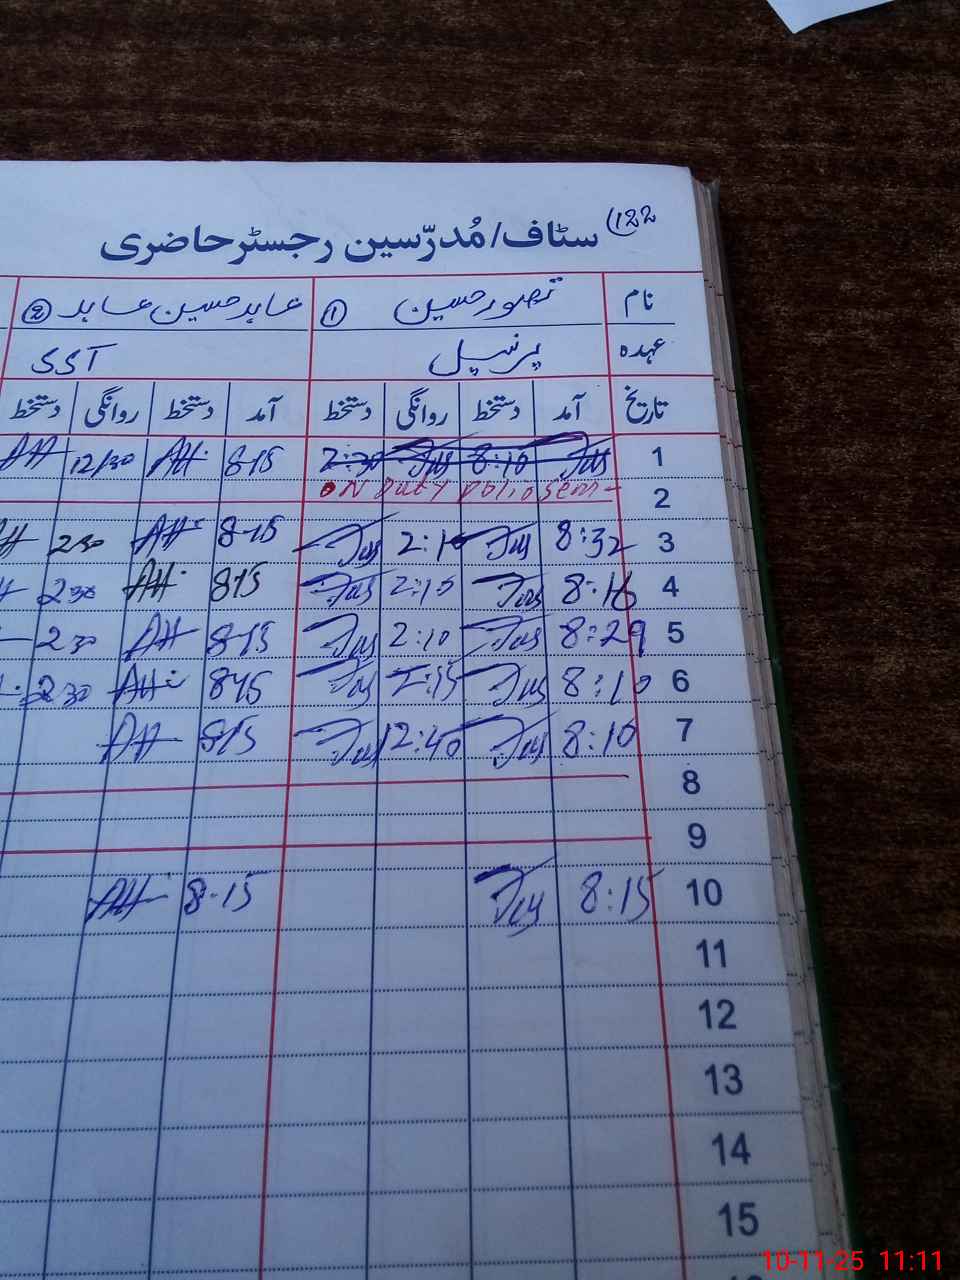 122
سٹاف/مُدرّسین رجسٹر حاضری
نام تصور حسین ① عابد حسین عابد ②
عہدہ پرنسپل
تاریخ آمد دستخط روانگی دستخط آمد دستخط روانگی دستخط
1 8:10 2:30 8-15 AH 12/30 AH
2 ON Duty Polio
3 8:32 2:10 8-15 AH 230
4 8:16 2:10 815 AH 230
5 8:29 2:10 8-15 AH 230
6 8:10 2:15 815 AH 230
7 8:10 12:40 815 AH
8
9
10 8:15 8-15 AH
11
12
13
14
15
10-11-25 11:11